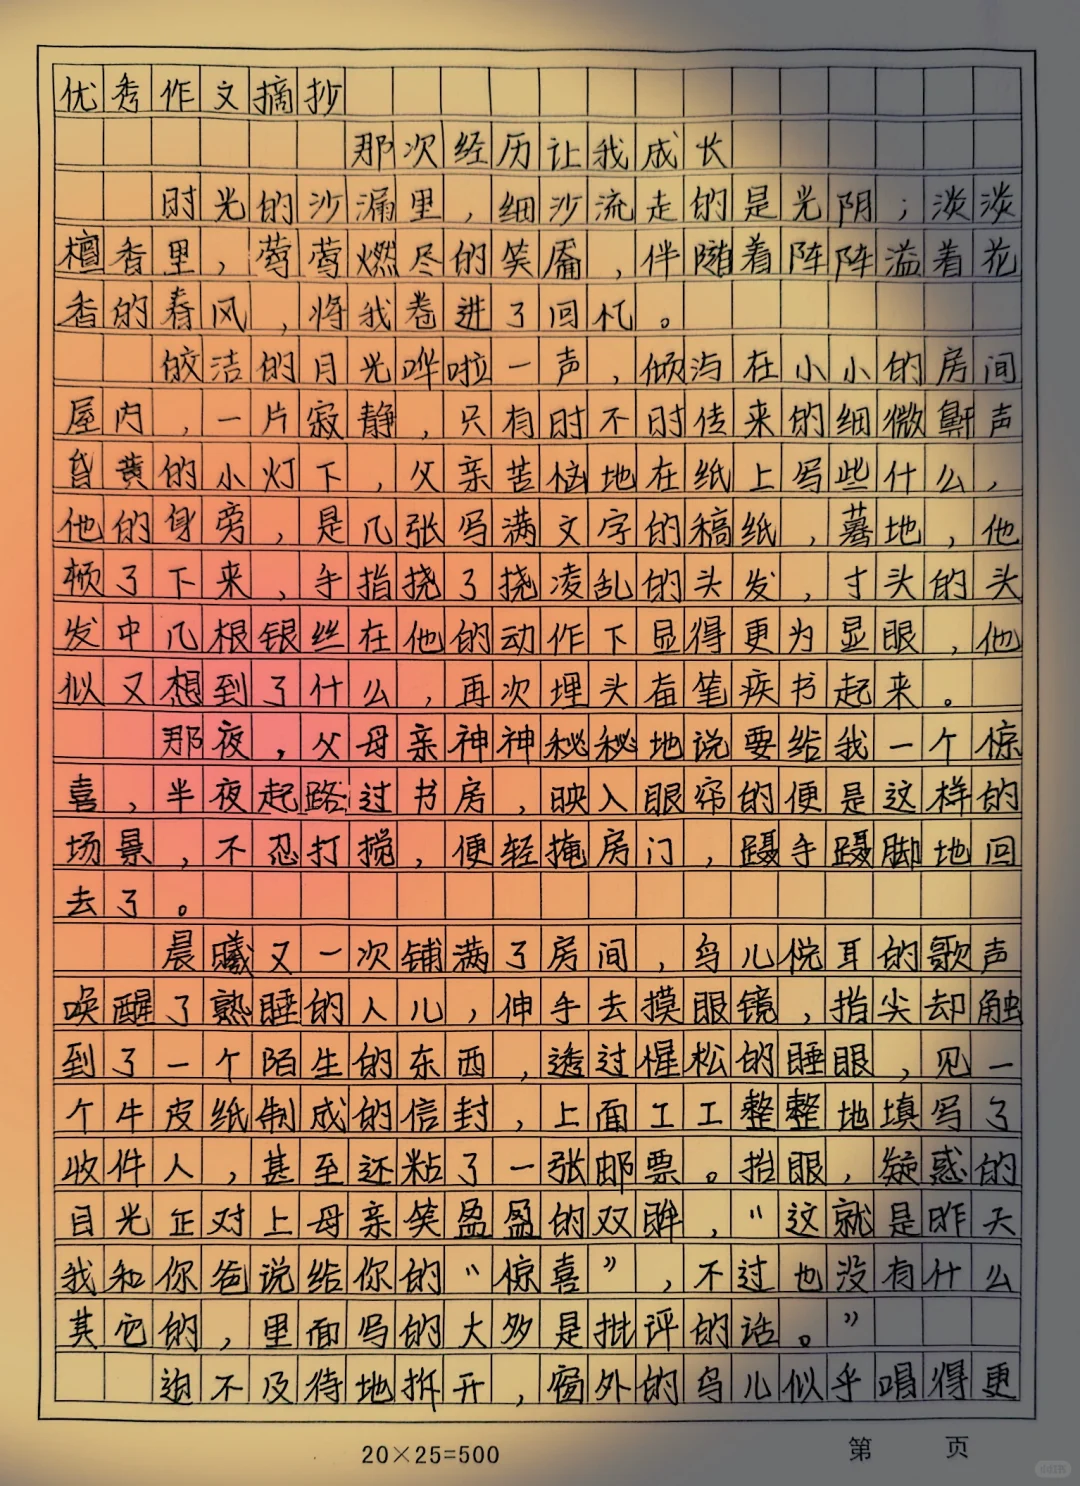 优秀作文摘抄
那次经历让我成长
时光的沙漏里，细沙流走的是光阴；淡淡
檀香里，莺莺燃尽的笑靥，伴随着阵阵溢着花
香的春风，将我卷进了回忆。
皎洁的月光哗啦一声，倾泻在小小的房间
屋内，一片寂静，只有时不时传来的细微鼾声
昏黄的小灯下，父亲苦恼地在纸上写些什么，
他的身旁，是几张写满文字的稿纸，蓦地，他
顿了下来，手指挠了挠凌乱的头发，寸头的头
发中几根银丝在他的动作下显得更为显眼，他
似又想到了什么，再次埋头奋笔疾书起来。
那夜，父母亲神神秘秘地说要给我一个惊
喜，半夜起路过书房，映入眼帘的便是这样的
场景，不忍打搅，便轻掩房门，蹑手蹑脚地回
去了。
晨曦又一次铺满了房间，鸟儿悦耳的歌声
唤醒了熟睡的人儿，伸手去摸眼镜，指尖却触
到了一个陌生的东西，透过惺松的睡眼，见一
个牛皮纸制成的信封，上面工工整整地填写了
收件人，甚至还粘了一张邮票。抬眼，疑惑的
目光正对上母亲笑盈盈的双眸，“这就是昨天
我和你爸说给你的“惊喜”，不过也没有什么
其它的，里面写的大多是批评的话。”
迫不及待地拆开，窗外的鸟儿似乎唱得更
20×25=500
第 页